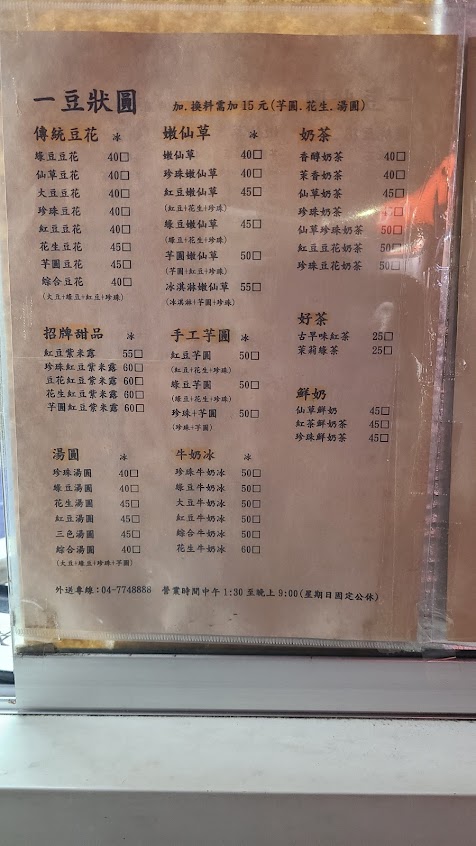 一豆狀圓
加.換料需加15元(芋圓.花生.湯圓)
傳統豆花 冰
綠豆豆花 40□
仙草豆花 40□
大豆豆花 40□
珍珠豆花 40□
紅豆豆花 40□
花生豆花 45□
芋圓豆花 45□
綜合豆花 40□
(大豆+綠豆+紅豆+珍珠)
嫩仙草 冰
嫩仙草 40□
珍珠嫩仙草 40□
紅豆嫩仙草 45□
(紅豆+花生+珍珠)
綠豆嫩仙草 45□
(綠豆+花生+珍珠)
芋圓嫩仙草 50□
(芋圓+紅豆+珍珠)
冰淇淋嫩仙草 55□
(冰淇淋+芋圓+珍珠)
奶茶
香醇奶茶 40□
茉香奶茶 40□
仙草奶茶 45□
珍珠奶茶 □
仙草珍珠奶茶 50□
紅豆豆花奶茶 50□
珍珠豆花奶茶 50□
招牌甜品 冰
紅豆紫米露 55□
珍珠紅豆紫米露 60□
豆花紅豆紫米露 60□
花生紅豆紫米露 60□
芋圓紅豆紫米露 60□
手工芋圓 冰
紅豆芋圓 50□
(紅豆+花生+珍珠)
綠豆芋圓 50□
(綠豆+花生+珍珠)
珍珠+芋圓 50□
(珍珠+芋圓)
好茶
古早味紅茶 25□
茉莉綠茶 25□
鮮奶
仙草鮮奶 45□
紅茶鮮奶茶 45□
珍珠鮮奶茶 45□
湯圓 冰
珍珠湯圓 40□
綠豆湯圓 40□
花生湯圓 45□
紅豆湯圓 45□
三色湯圓 45□
綜合湯圓 40□
(大豆+綠豆+珍珠+芋圓)
牛奶冰 冰
珍珠牛奶冰 50□
綠豆牛奶冰 50□
大豆牛奶冰 50□
紅豆牛奶冰 50□
綜合牛奶冰 50□
花生牛奶冰 60□
外送專線:04-7748888 營業時間中午1:30至晚上9:00(星期日固定公休)